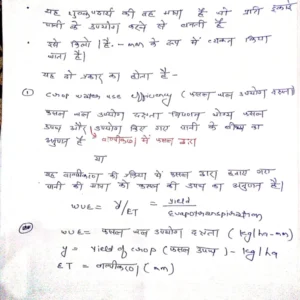 यह शुष्क पदार्थ की वह मात्रा है जो प्रति इकाई
पानी के उपयोग करने से बनती है
इसे किग्रा / है. - mm के रूप में व्यक्त किया
जाता है।
यह दो प्रकार का होता है -
① crop water use efficiency (फसल जल उपयोग दक्षता)
फसल जल उपयोग दक्षता विपणन योग्य फसल
उपज और उपयोग किए गए पानी के बीच का
अनुपात है वाष्पीकरण में फसल द्वारा
या
यह वाष्पीकरण की क्रिया में फसल द्वारा
पानी की मात्रा को फसल की उपज का अनुपात है।
WUE = Y/ET = yield / Evapotranspiration
WUE = फसल जल उपयोग दक्षता (kg/ha-mm)
y = yield of crop (फसल उपज) - kg/ha
ET = वाष्पीकरण (mm)